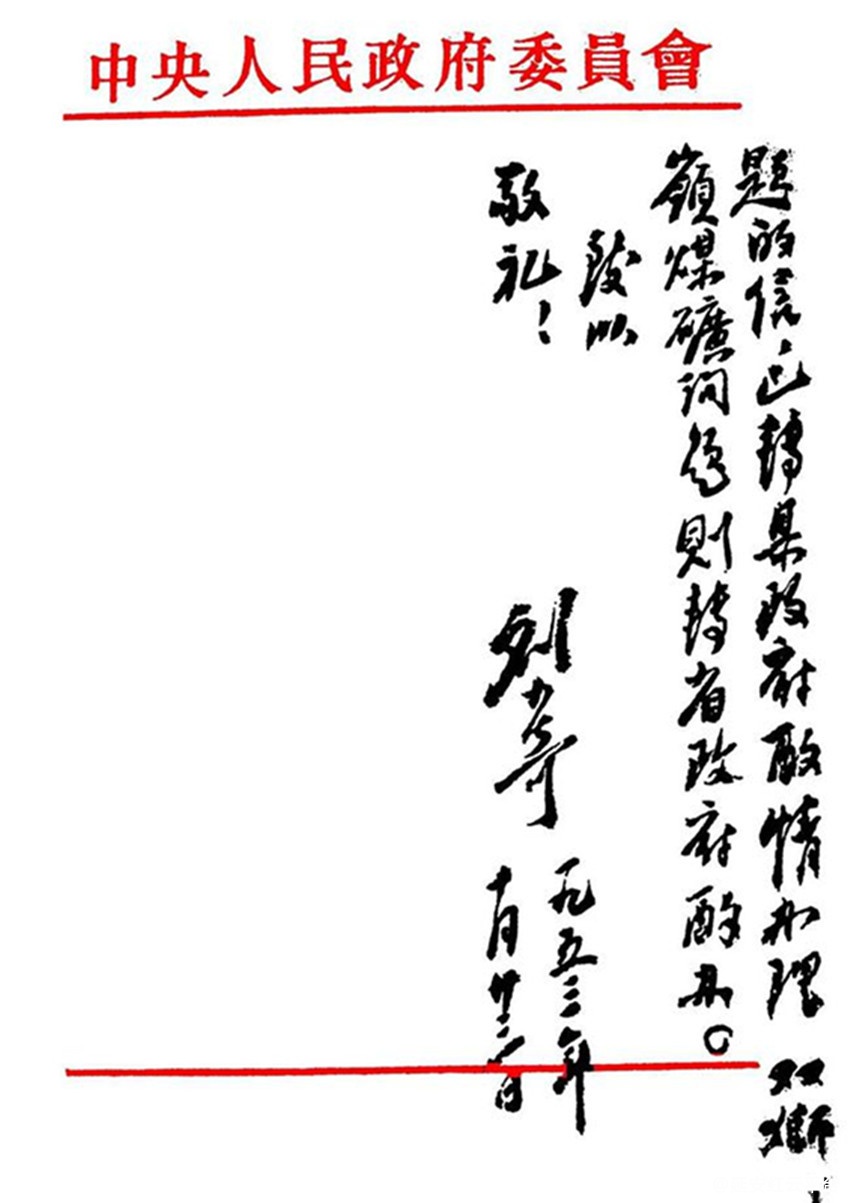 中央人民政府委員會
題的信，已轉县政府酌情办理 双獅
嶺煤礦问題則轉省政府酌办。
致以
敬礼！
刘少奇
一九五三年
十月廿三日